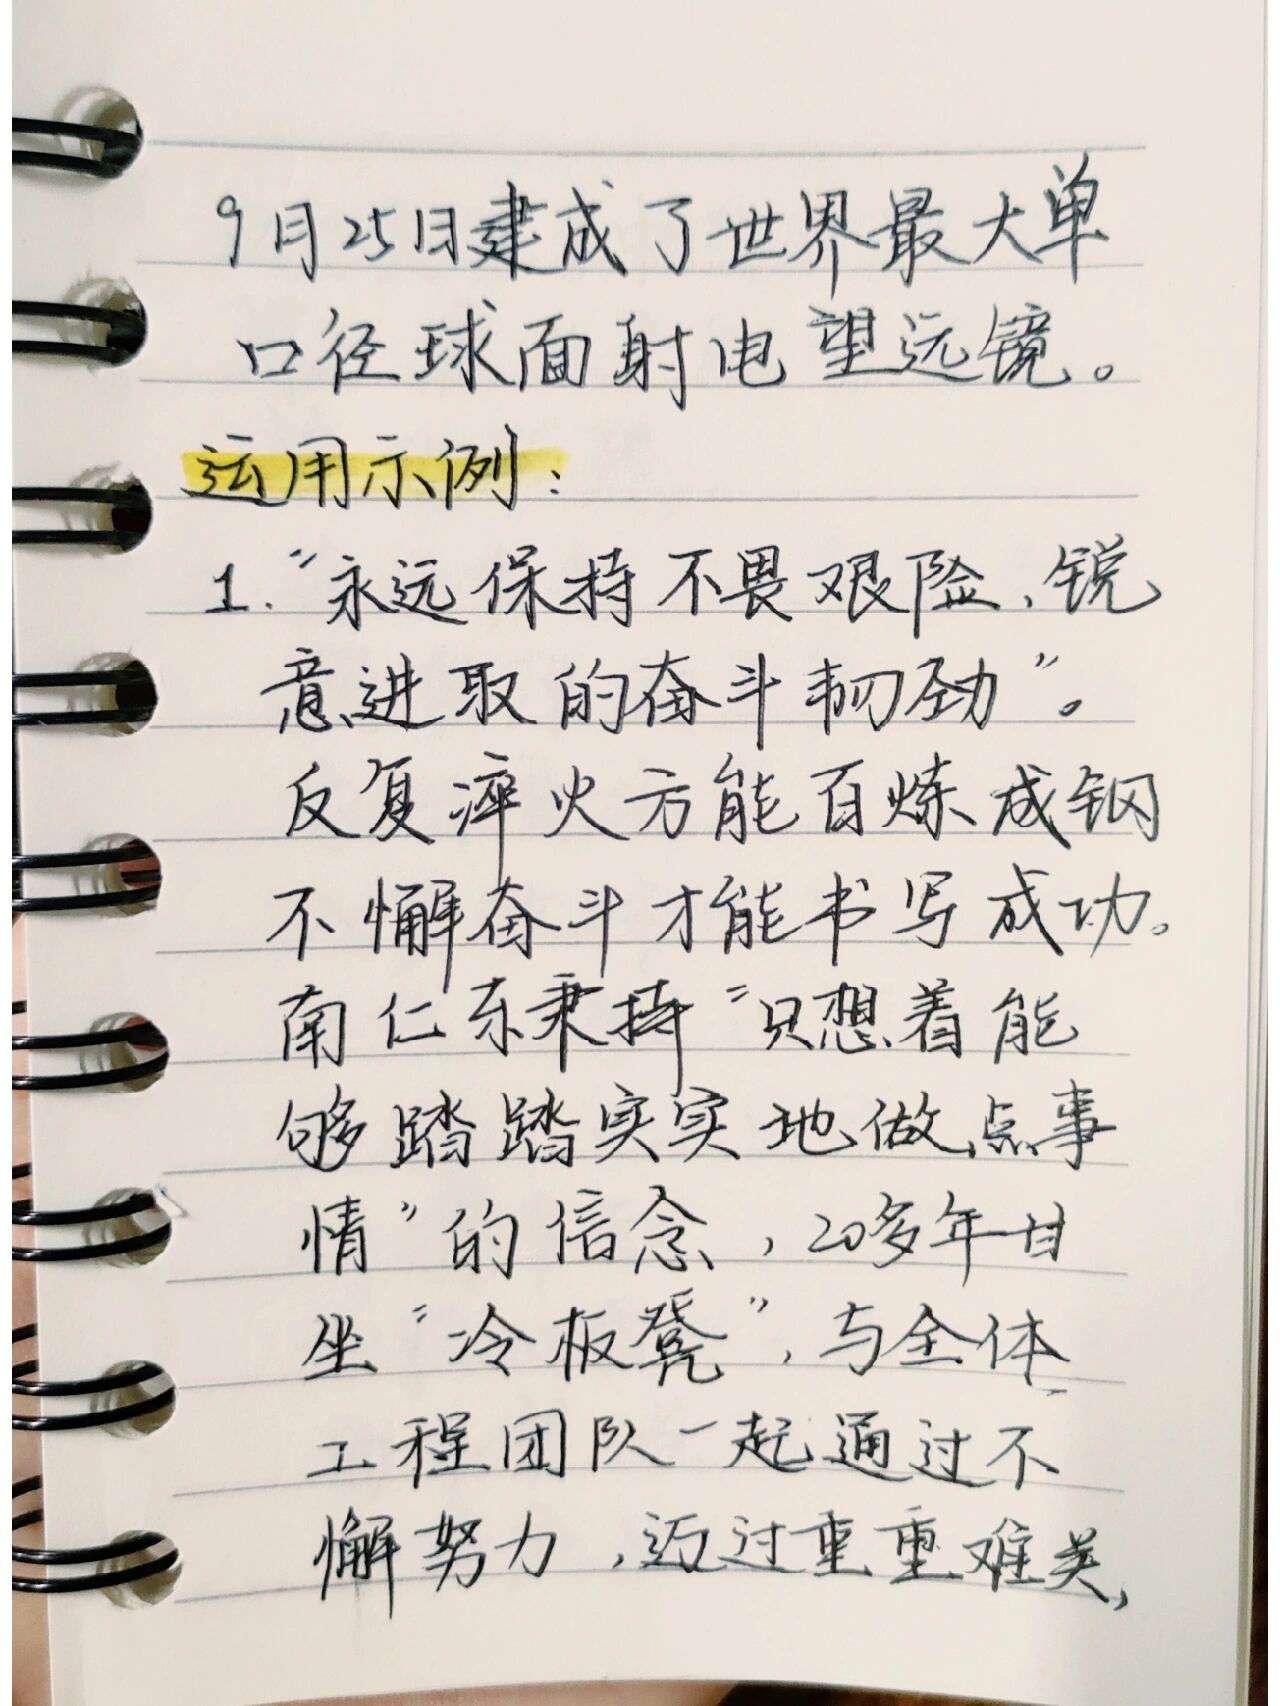 9月25日建成了世界最大单
口径球面射电望远镜。
运用示例:
1.“永远保持不畏艰险、锐
意进取的奋斗韧劲”。
反复淬火方能百炼成钢
不懈奋斗才能书写成功。
南仁东秉持“只想着能
够踏踏实实地做点事
情”的信念，20多年甘
坐“冷板凳”，与全体
工程团队一起通过不
懈努力，迈过重重难关，